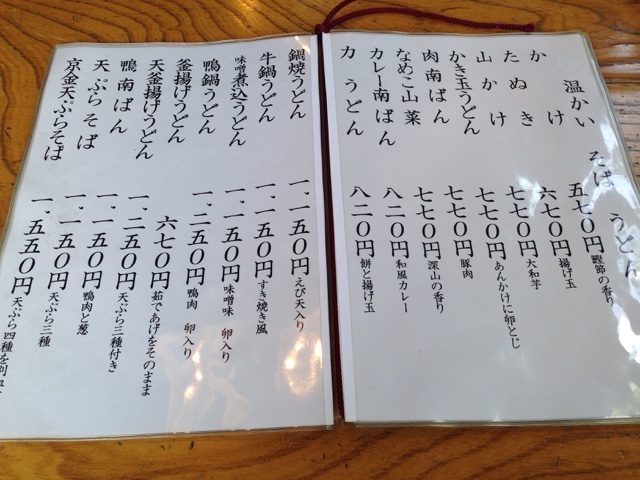 温かい そば うどん
かけ 五七〇円 鰹節の香り
たぬき 六七〇円 揚げ玉
山かけ 七七〇円 大和芋
かき玉うどん 七七〇円 あんかけに卵とじ
肉南ばん 七七〇円 豚肉
なめこ山菜 七七〇円 深山の香り
カレー南ばん 八二〇円 和風カレー
力うどん 八二〇円 餅と揚げ玉
鍋焼うどん 一、一五〇円 えび天入り
牛鍋うどん 一、一五〇円 すき焼き風
味噌煮込うどん 一、一五〇円 味噌味 卵入り
鴨鍋うどん 一、二五〇円 鴨肉 卵入り
釜揚げうどん 六七〇円 茹であげをそのまま
天釜揚げうどん 一、二五〇円 天ぷら三種付き
鴨南ばん 一、一五〇円 鴨肉と葱
天ぷらそば 一、一五〇円 天ぷら三種
京金天ぷらそば 一、五五〇円 天ぷら四種を別